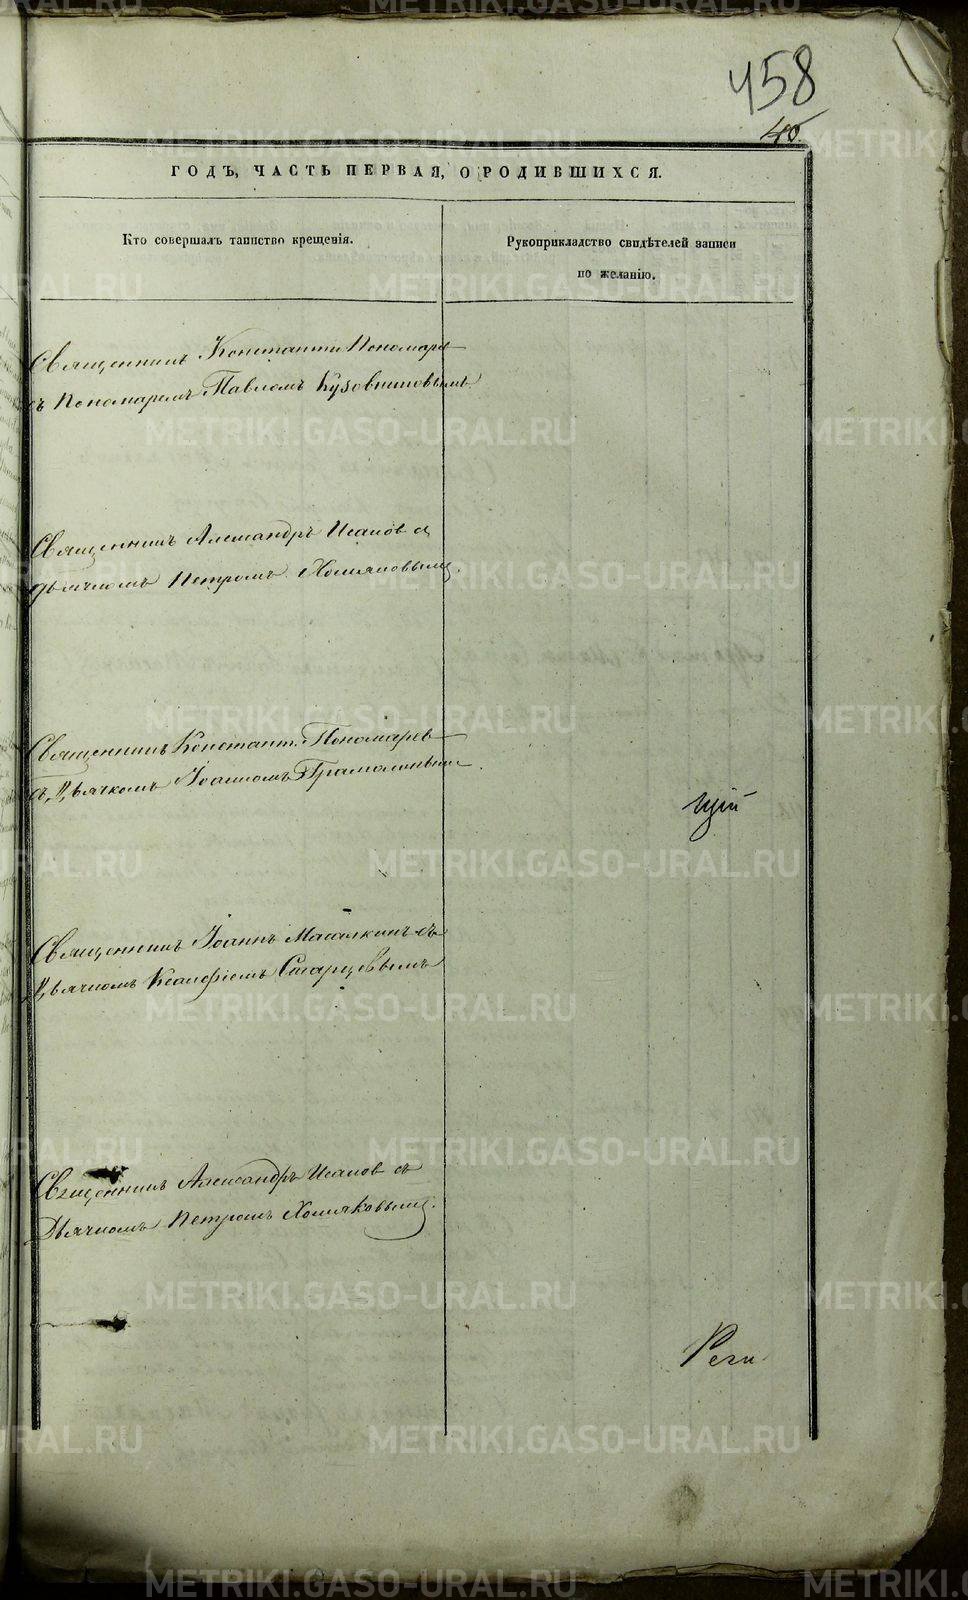 458
40.
ГОДЪ, ЧАСТЬ ПЕРВАЯ, О РОДИВШИХСЯ.
Кто совершалъ таинство крещенія.
Рукоприкладство свидѣтелей записи
по желанію.
Священникъ Константинъ Пономарев
съ Пономаремъ Павломъ Кузовниковымъ
Священникъ Александръ Исаков съ
Дьячкомъ Петромъ Хомяковымъ.
Священникъ Констант. Пономарев
съ Дьячкомъ Іоанномъ
цій
Священникъ Іоаннъ Масалкинъ съ
Дьячкомъ Ксанфіемъ Старцевымъ
Священникъ Александръ Исаков съ
Дьячкомъ Петромъ Хомяковымъ.
Реги
METRIKI.GASO-URAL.RU